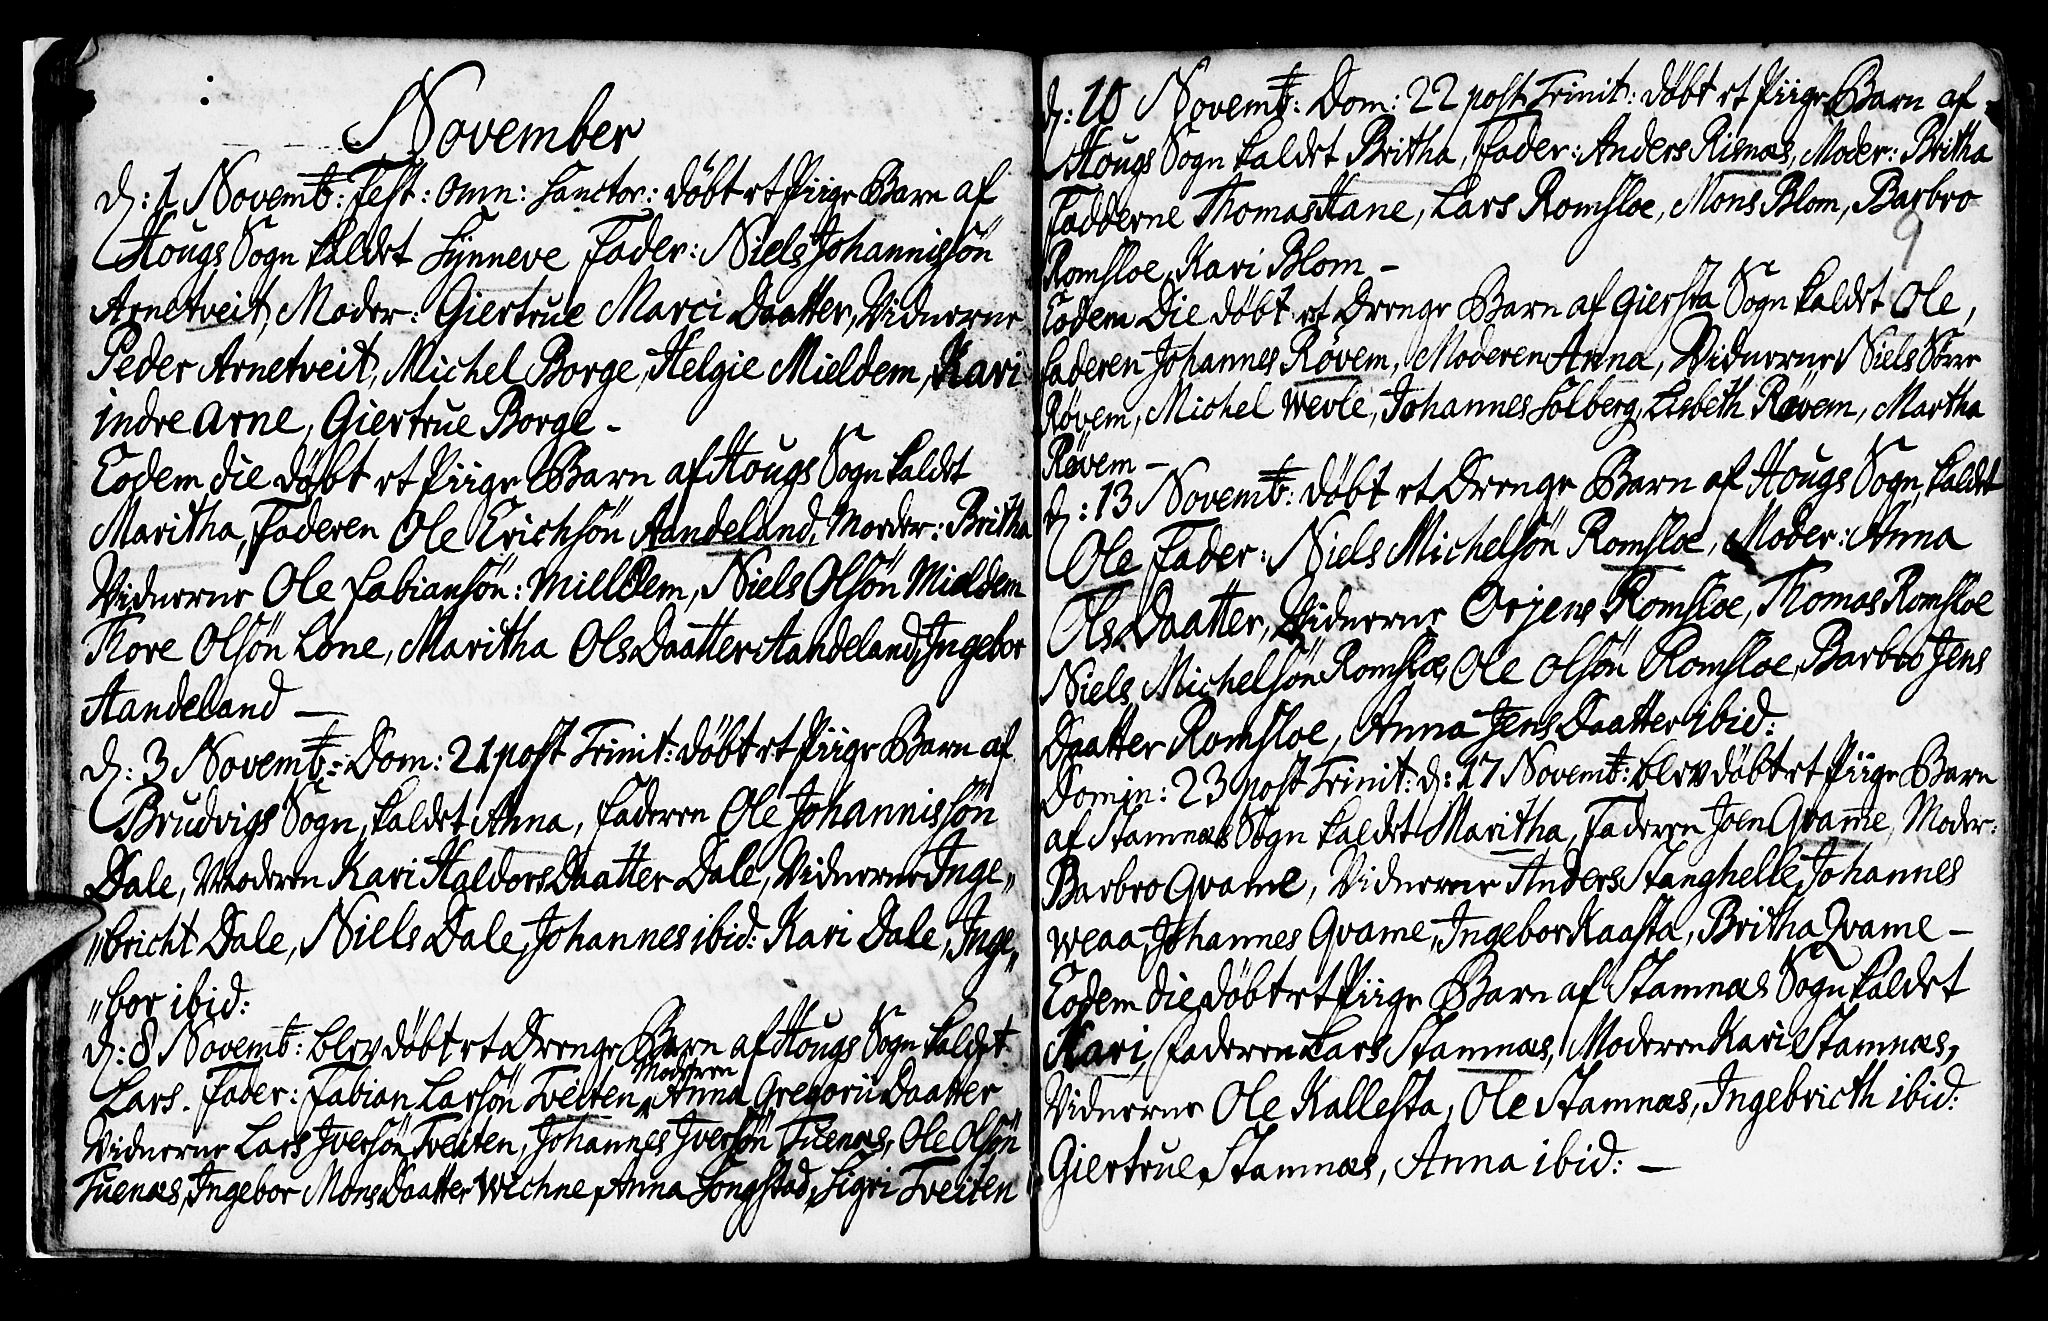 November
d: 1 Novemb: Fest: omn: Sanctor: døbt et Piige Barn af
Hougs Sogn kaldet Synneve Fader: Niels Johannissön
Arnetveit, Moder: Giertrue Marci Daatter, Vidnerne
Peder Arnetveit, Michel Borge, Helgie Mieldem, Kari
indre Arne, Giertrue Borge -
Eodem die døbt et Piige Barn af Hougs Sogn kaldet
Maritha, Faderen Ole Erichsön Aandeland, Morder: Britha
Vidnerne Ole Fabiansön: Mielldem, Niels Olsön Mieldem
Thore Olsön Lone, Maritha Ols Daatter Aandeland, Ingebor
Aandeland —
d: 3 Novemb: Dom: 21 post Trinit: døbt et Piige Barn af
Brudvigs Sogn, kaldet Anna, Faderen Ole Johannissön
Dale, Moderen Kari Haldors Daatter Dale, Vidnerne Inge„
„bricht Dale, Niels Dale, Johannes ibid: Kari Dale, Inge„
„bor ibid:
d: 8 Novemb: blev døbt et Drenge Barn af Hougs Sogn kaldet
Lars. Fader: Fabian Larsön Tveiten, Moderen Anna Gregorii Daatter
Vidnerne Lars Iversön Tveiten, Johannes Iversön Tuenæs, Ole Olsön
Tuenæs, Ingebor Mons Daatter Wichne, Anna Songstad, Sigri Tveiten
d: 10 Novemb: Dom: 22 post Trinit: døbt et Piige Barn af
Hougs Sogn kaldet Britha, Fader: Anders Risnæs, Moder: Britha
Fadderne Thomas Hane, Lars Romsloe, Mons Blom, Barbro
9
Romsloe, Kari Blom -
Eodem Die døbt et Drenge Barn af Giersta Sogn kaldet Ole,
Faderen Johannes Røvem, Moderen Anna, Vidnerne Niels Sörre
Røvem, Michel Wevle, Johannes Solberg, Lisbeth Røvem, Martha
Røvem —
d: 13 Novemb: døbt et Drenge Barn af Hougs Sogn, kaldet
Ole Fader: Niels Michelsön Romsloe, Moder: Anna
Ols Daatter, Vidnerne Örjens Romsloe, Thomas Romsloe
Niels Michelsön Romsloe, Ole Olsön Romsloe, Barbro Jens
Daatter Romsloe, Anna Jens Daatter ibid:
Domin: 23 post Trinit: d: 17 Novemb: blev døbt et Piige Barn
af Stamnæs Sogn kaldet Maritha, Faderen Joen Qvame, Moder:
Barbro Qvame, Vidnerne Anders Stanghelle, Johannes
Weaa, Johannes Qvame, Ingebor Kaasta, Britha Qvame —
Eodem die døbt et Piige Barn af Stamnæs Sogn kaldet
Kari, Faderen Lars Stamnæs, Moderen Kari Stamnæs,
Vidnerne Ole Kallesta, Ole Stamnæs, Ingebricth ibid:
Giertrue Stamnæs, Anna ibid: —